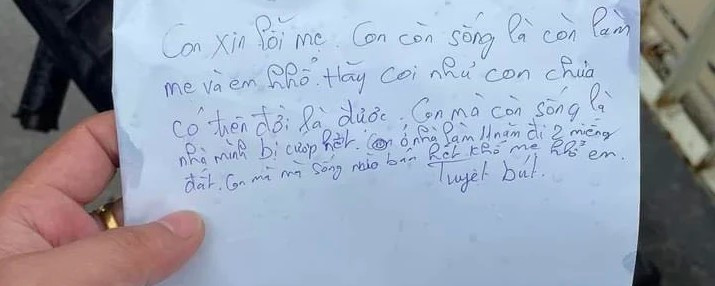 Con xin lỗi mẹ. Con còn sống là còn làm
mẹ và em khổ. Hãy coi như con chưa
có trên đời là được. Con mà còn sống là
nhà mình bị cướp hết. Con ở nhà làm 11 năm đi 2 miếng
đất. Con mà mà sống nhà bán hết khổ mẹ khổ em.
Tuyệt bút.